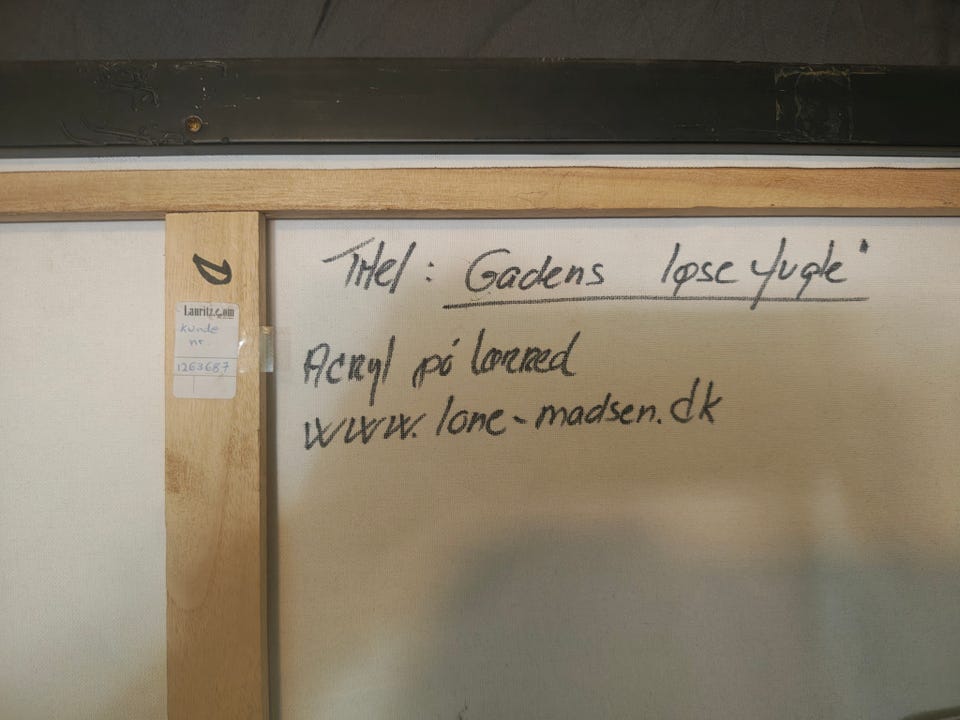 D
Lauritz.com
Kunde
nr
1263687
Titel: Gadens løse fugle"
Acryl på lærred
www.lone-madsen.dk